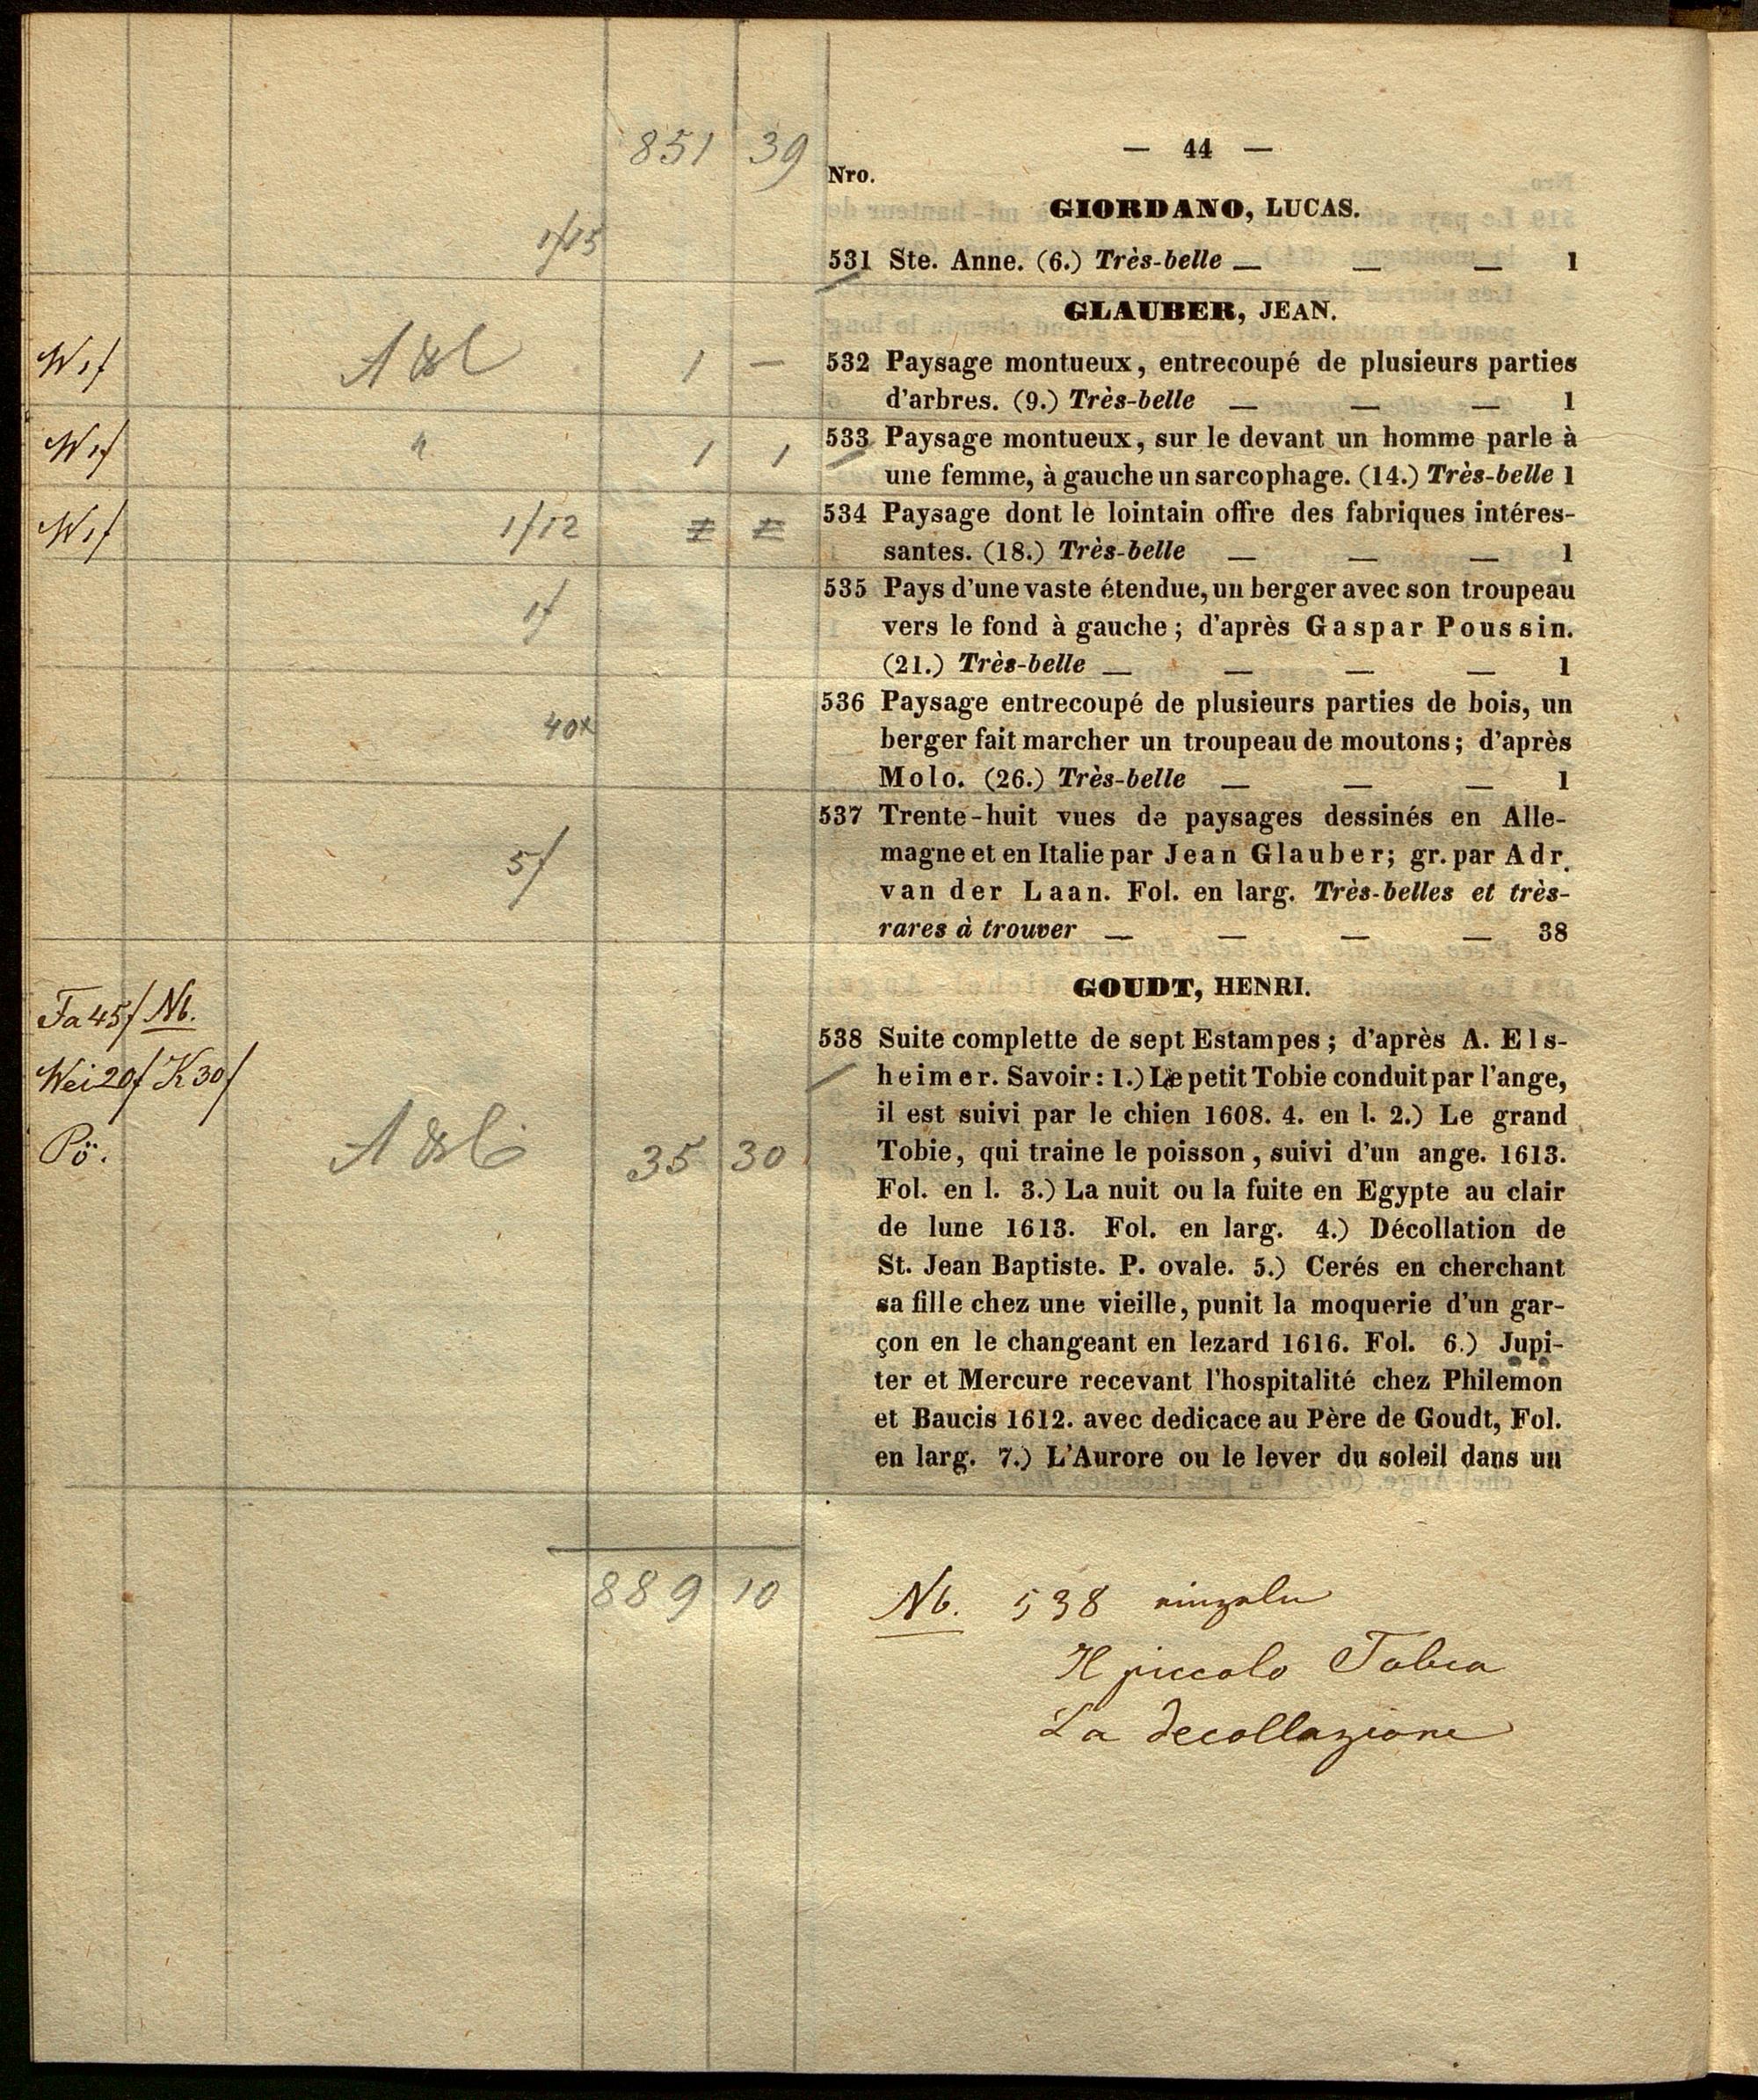 851 39
— 44 —
Nro.
GIORDANO, LUCAS.
1/15
531 Ste. Anne. (6.) Très-belle — — — 1
GLAUBER, JEAN.
1 —
532 Paysage montueux, entrecoupé de plusieurs parties
d'arbres. (9.) Très-belle — — — 1
1 1
533 Paysage montueux, sur le devant un homme parle à
une femme, à gauche un sarcophage. (14.) Très-belle 1
1/12
534 Paysage dont le lointain offre des fabriques intéres-
santes. (18.) Très-belle — — — 1
1f
535 Pays d'une vaste étendue, un berger avec son troupeau
vers le fond à gauche; d'après Gaspar Poussin.
(21.) Très-belle — — — — 1
40x
536 Paysage entrecoupé de plusieurs parties de bois, un
berger fait marcher un troupeau de moutons; d'après
Molo. (26.) Très-belle — — — 1
5f
537 Trente-huit vues de paysages dessinés en Alle-
magne et en Italie par Jean Glauber; gr. par Adr.
van der Laan. Fol. en larg. Très-belles et très-
rares à trouver — — — — 38
GOUDT, HENRI.
Fa 45f Nb.
Wei 20f K 30f
Pö.
35 30
538 Suite complette de sept Estampes; d'après A. Els-
heimer. Savoir: 1.) Le petit Tobie conduit par l'ange,
il est suivi par le chien 1608. 4. en l. 2.) Le grand
Tobie, qui traine le poisson, suivi d'un ange. 1613.
Fol. en l. 3.) La nuit ou la fuite en Egypte au clair
de lune 1613. Fol. en larg. 4.) Décollation de
St. Jean Baptiste. P. ovale. 5.) Cerés en cherchant
sa fille chez une vieille, punit la moquerie d'un gar-
çon en le changeant en lezard 1616. Fol. 6.) Jupi-
ter et Mercure recevant l'hospitalité chez Philemon
et Baucis 1612. avec dedicace au Père de Goudt, Fol.
en larg. 7.) L'Aurore ou le lever du soleil dans un
889 10
Nb. 538 einzeln
Il piccolo Tobia
La decollazione